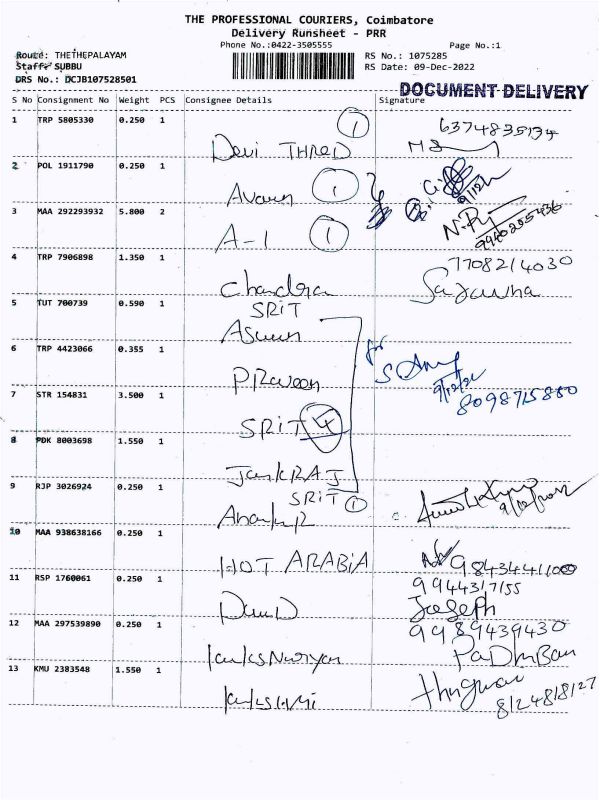 THE PROFESSIONAL COURIERS, Coimbatore
Delivery Runsheet - PRR
Phone No.:0422-3505555
Page No.:1
Route: THETHEPALAYAM
Staff: SUBBU
DRS No.: DCJB107528501
RS No.: 1075285
RS Date: 09-Dec-2022
DOCUMENT DELIVERY
S No Consignment No Weight PCS Consignee Details Signature
1 TRP 5805330 0.250 1
1
6374835134
Devi THRED
2 POL 1911790 0.250 1
1
9/12/
3 MAA 292293932 5.800 2
A-1 1
4 TRP 7906898 1.350 1
7708214030
Chandra
5 TUT 700739 0.590 1
SRIT
6 TRP 4423066 0.355 1
for
PRaveen
9/12/22
7 STR 154831 3.500 1
8098715880
SRIT 4
8 PDK 8003698 1.550 1
JankRAJ
9 RJP 3026924 0.250 1
SRIT 1
9/12/2022
10 MAA 938638166 0.250 1
HOT ARABIA
11 RSP 1760061 0.250 1
9944317155
Joseph
12 MAA 297539890 0.250 1
9989439430
13 KMU 2383548 1.550 1
8124818127